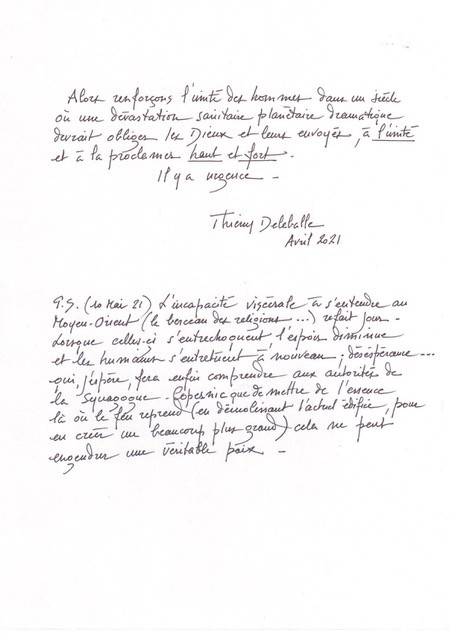 Alors renforçons l'unité des hommes dans un siècle
où une dévastation sanitaire planétaire dramatique
devrait obliger les Dieux et leurs envoyés, à l'unité
et à la proclamer haut et fort.
Il y a urgence -
Thierry Deleballe
Avril 2021
P.S. (10 Mai 21) L'incapacité viscérale à s'entendre au
Moyen-Orient (le berceau des religions ...) refait jour -
Lorsque celles-ci s'entrechoquent l'espoir diminue
et les humains s'entretuent à nouveau ; désespérance ...
qui, j'espère, fera enfin comprendre aux autorités de
la Synagogue Copernic que de mettre de l'essence
là où le feu reprend (en démolissant l'actuel édifice, pour
en créer un beaucoup plus grand) cela ne peut
engendrer une véritable paix -